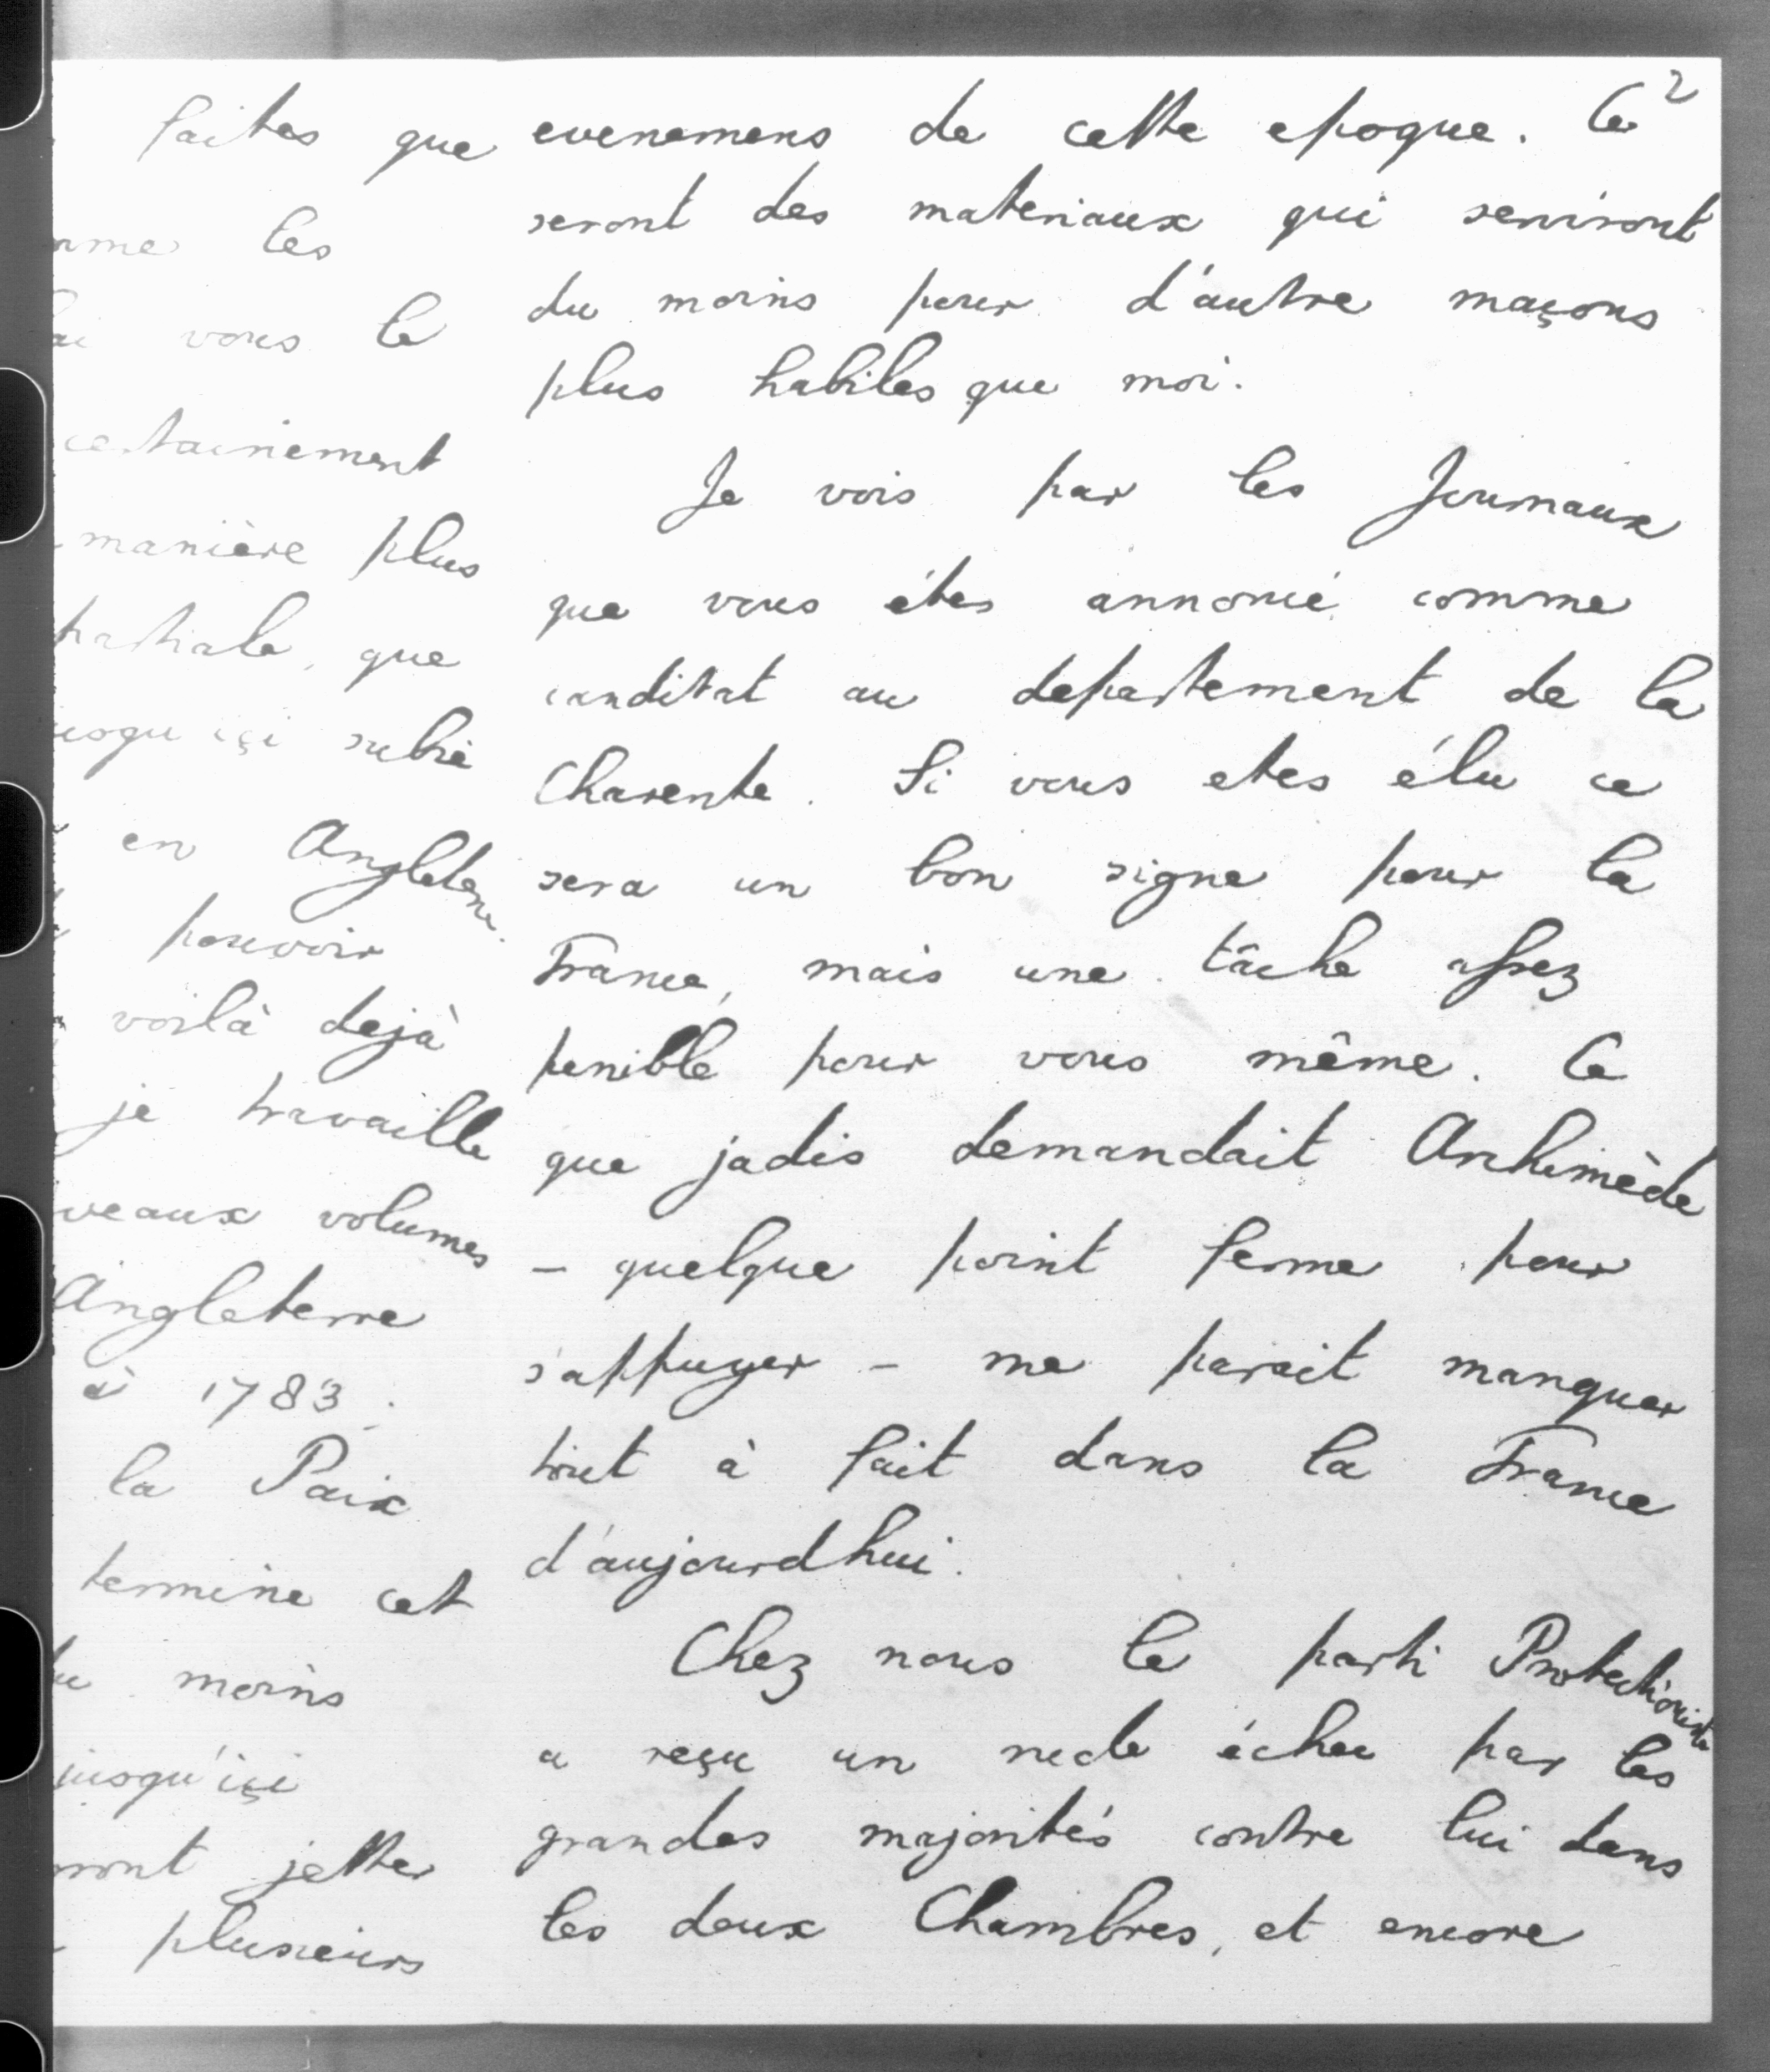 faites que
les
vous le
certainement
manière plus
partiale, que
subie
en Angleterre.
pouvoir
voilà dejà
je travaille
veaux volumes
Angleterre
à 1783 ;
la Paix
termine cet
moins
jusqu'içi
ront jetter
plusieurs
2
evenemens de cette epoque. Ce
seront des materiaux qui serviront
du moins pour d'autre maçons
plus habiles que moi.
Je vois par les Journaux
que vous étes annoncé comme
canditat au departement de la
Charente. Si vous etes élu ce
sera un bon signe pour la
France, mais une tâche assez
penible pour vous même. Ce
que jadis demandait Archimède
– quelque point ferme pour
s'appuyer – me parait manquer
tout à fait dans la France
d'aujourdhui.
Chez nous le parti Protectioniste
a reçu un rude échec par les
grandes majorités contre lui dans
les deux Chambres, et encore